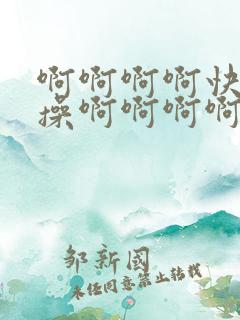 啊啊啊啊快
操啊啊啊啊
邹新国
未任同意禁止转载